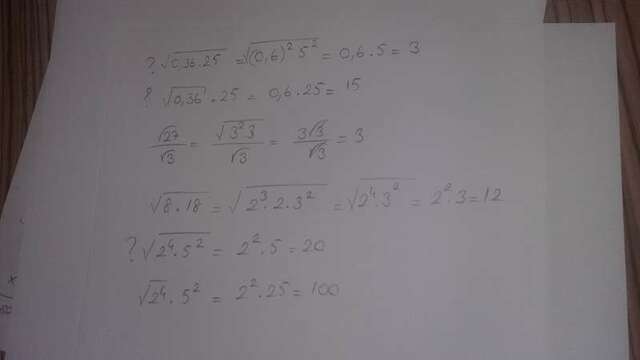 ? √0,36.25 = √(0,6)² 5² = 0,6.5 = 3
? √0,36 . 25 = 0,6.25 = 15
√27/√3 = √3²3/√3 = 3√3/√3 = 3
√8.18 = √2³.2.3² = √2⁴.3² = 2².3 = 12
? √2⁴.5² = 2².5 = 20
√2⁴ . 5² = 2².25 = 100
x